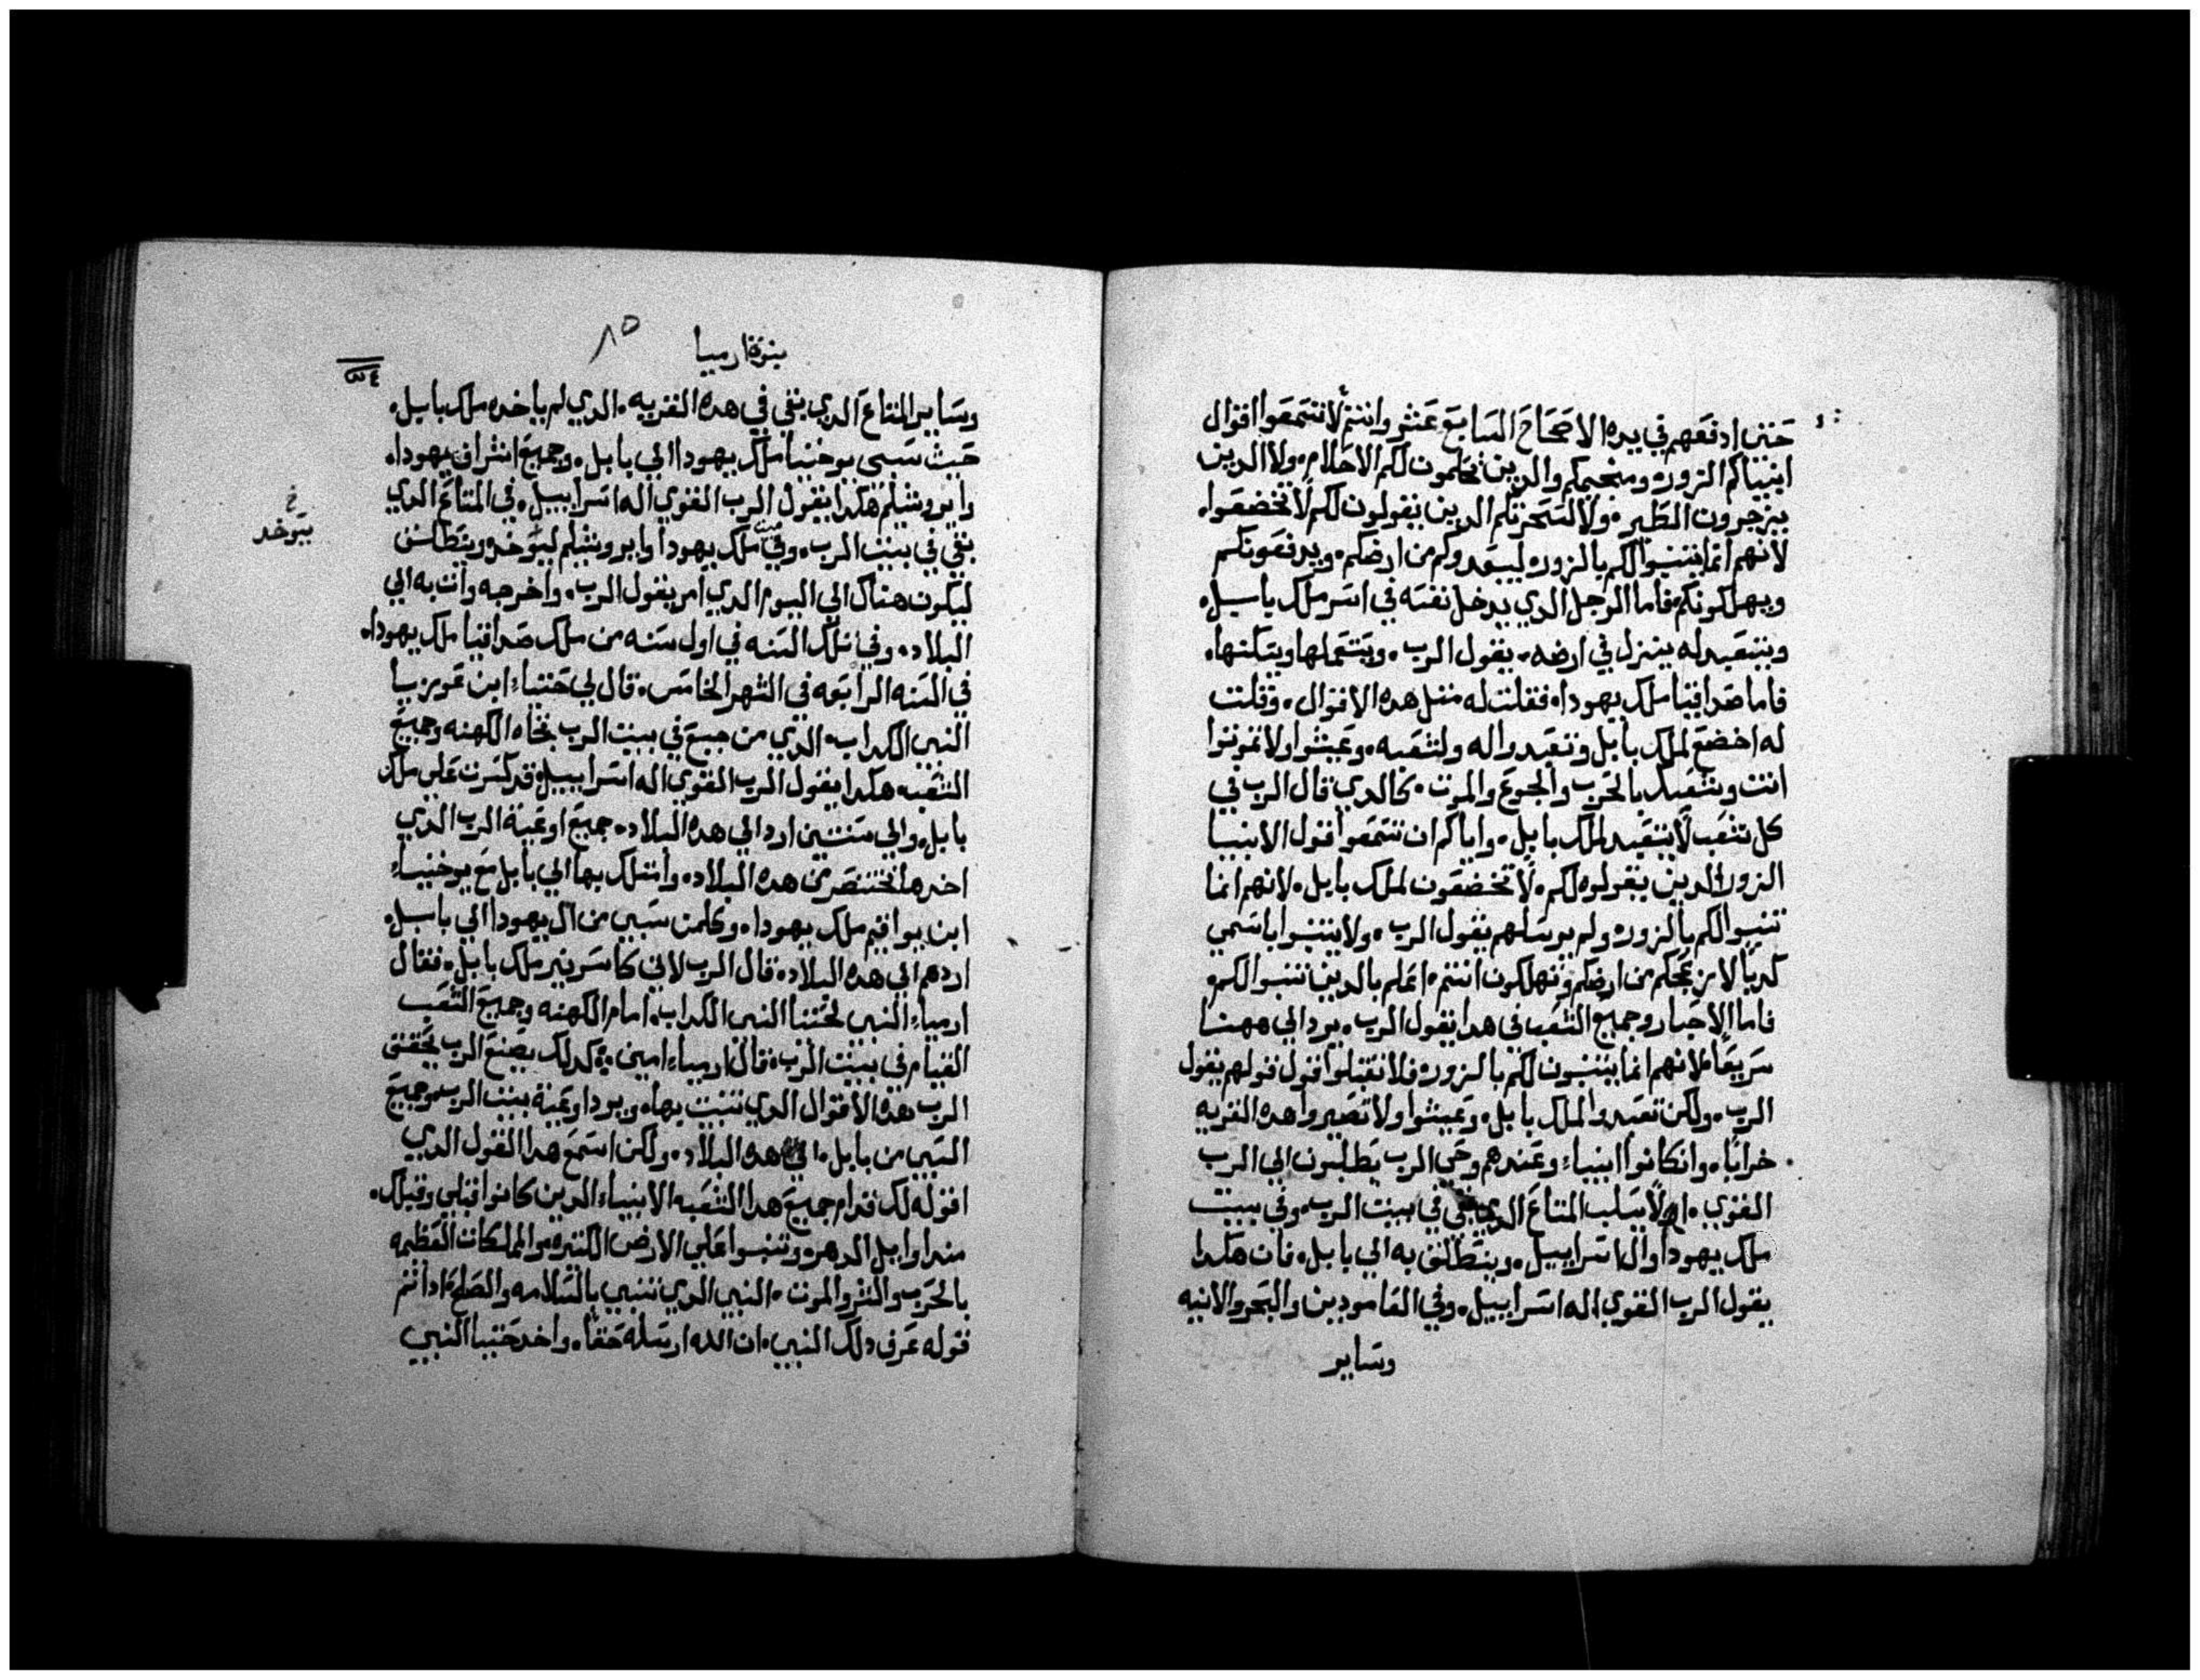 حتي ادفعهم في يده الاصحاح السابع عشر وانتم لا تسمعوا اقوال
انبياكم الزوره ومنجميكم والدين يحلمون لكم الاحلام، ولا الدين
يزجرون الطير، ولا لسحرتكم الدين يقولون لكم لا تخضعوا،
لانهم انما يتنبوا لكم بالزوره ليبعدوكم من ارضكم، ويدفعونكم
ويهلكونكم، فاما الرجل الدي يدخل نفسه في اسر ملك بابل،
ويتعبد له ينزل في ارضه، يقول الرب، ويستعملها ويسكنها،
فاما صداقيا ملك يهودا، فقلت له مثل هده الاقوال، وقلت
له اخضع لملك بابل وتعبدوا له ولشعبه، وعيشوا ولا تموتوا
انت وشعبك بالحرب والجوع والموت، كالدي قال الرب في
كل شعب لا يتعبد لملك بابل، واياكم ان تسمعوا قول الانبيا
الزوره الدين يقولوا لكم، لا تخضعون لملك بابل، لانهم انما
تنبوا لكم بالزوره ولم يرسلهم يقول الرب، ولا يتنبوا باسمي
كدبا لازعجكم من ارضكم وتهلكون انتم، اعلم بالدين تنبوا لكم،
فاما الاحبار وجميع الشعب في هدا يقول الرب، يرد الي ههنا
سريعا، لانهم انما يتنبون لكم بالزوره فلا تقبلوا قول قولهم يقول
الرب، ولكن تعبدوا لملك بابل، وعيشوا ولا تصيروا هده القريه
خرابا، وان كانوا انبياء وعندهم وحي الرب يطلبون الي الرب
القوي، ان لا يسلب المتاع الدي بقي في بيت الرب، وفي بيت
ملك يهودا وال اسراييل، وينطلق به الي بابل، فان هكدا
يقول الرب القوي اله اسراييل، وفي العامودين والبحر والانيه
وساير
نبوة ارميا
٨٥
وساير المتاع الدي بقي في هده القريه، الدي لم ياخده ملك بابل،
حيث سبي يوخنيا ملك يهودا الي بابل، وجميع اشراف يهودا،
وايروشليم هكدا يقول الرب القوي اله اسراييل، في المتاع الدي
بقي في بيت الرب، وفي بيت ملك يهودا وايروشليم ليوخد وينطلق
خ
يبوخد
ليكون هناك الي اليوم الدي امر يقول الرب، واخرجه وات به الي
البلاد، وفي تلك السنه في اول سنه من ملك صداقيا ملك يهودا،
في السنه الرابعه في الشهر الخامس، قال لي حننياء ابن عوزيا
النبي الكداب، الدي من جبع في بيت الرب تجاه الكهنه وجميع
الشعب، هكدا يقول الرب القوي اله اسراييل، قد كسرت علي ملك
بابل، والي سنتين ارد الي هده البلاد، جميع اوعية الرب الدي
اخدها بختنصر من هده البلاد، وانتلك بها الي بابل مع يوخنياء
ابن يواقيم ملك يهودا، وكلمن سبي من ال يهودا الي بابل،
اردهم الي هده البلاد، قال الرب لاني كاسر نير ملك بابل، فقال
ارمياء النبي لحننيا النبي الكداب، امام الكهنه وجميع الشعب
القيام في بيت الرب، قال ارمياء امين، كدلك يصنع الرب يحقق
الرب هده الاقوال الدي تنبيت بها، ويرد اوعية بيت الرب، وجميع
السبي من بابل، الي هده البلاد، ولكن اسمع هدا القول الدي
اقوله لك قدام جميع هدا الشعب، الانبياء الدين كانوا قبلي وقبلك،
مند اوايل الدهر، وتنبوا علي الارض الكتره، والمملكات العظيمه
بالحرب والشر والموت، النبي الدي تنبي بالسلامه والصلح، ادا تم
قوله عرف دلك النبي، ان الله ارسله حقا، واخد حننيا النبي